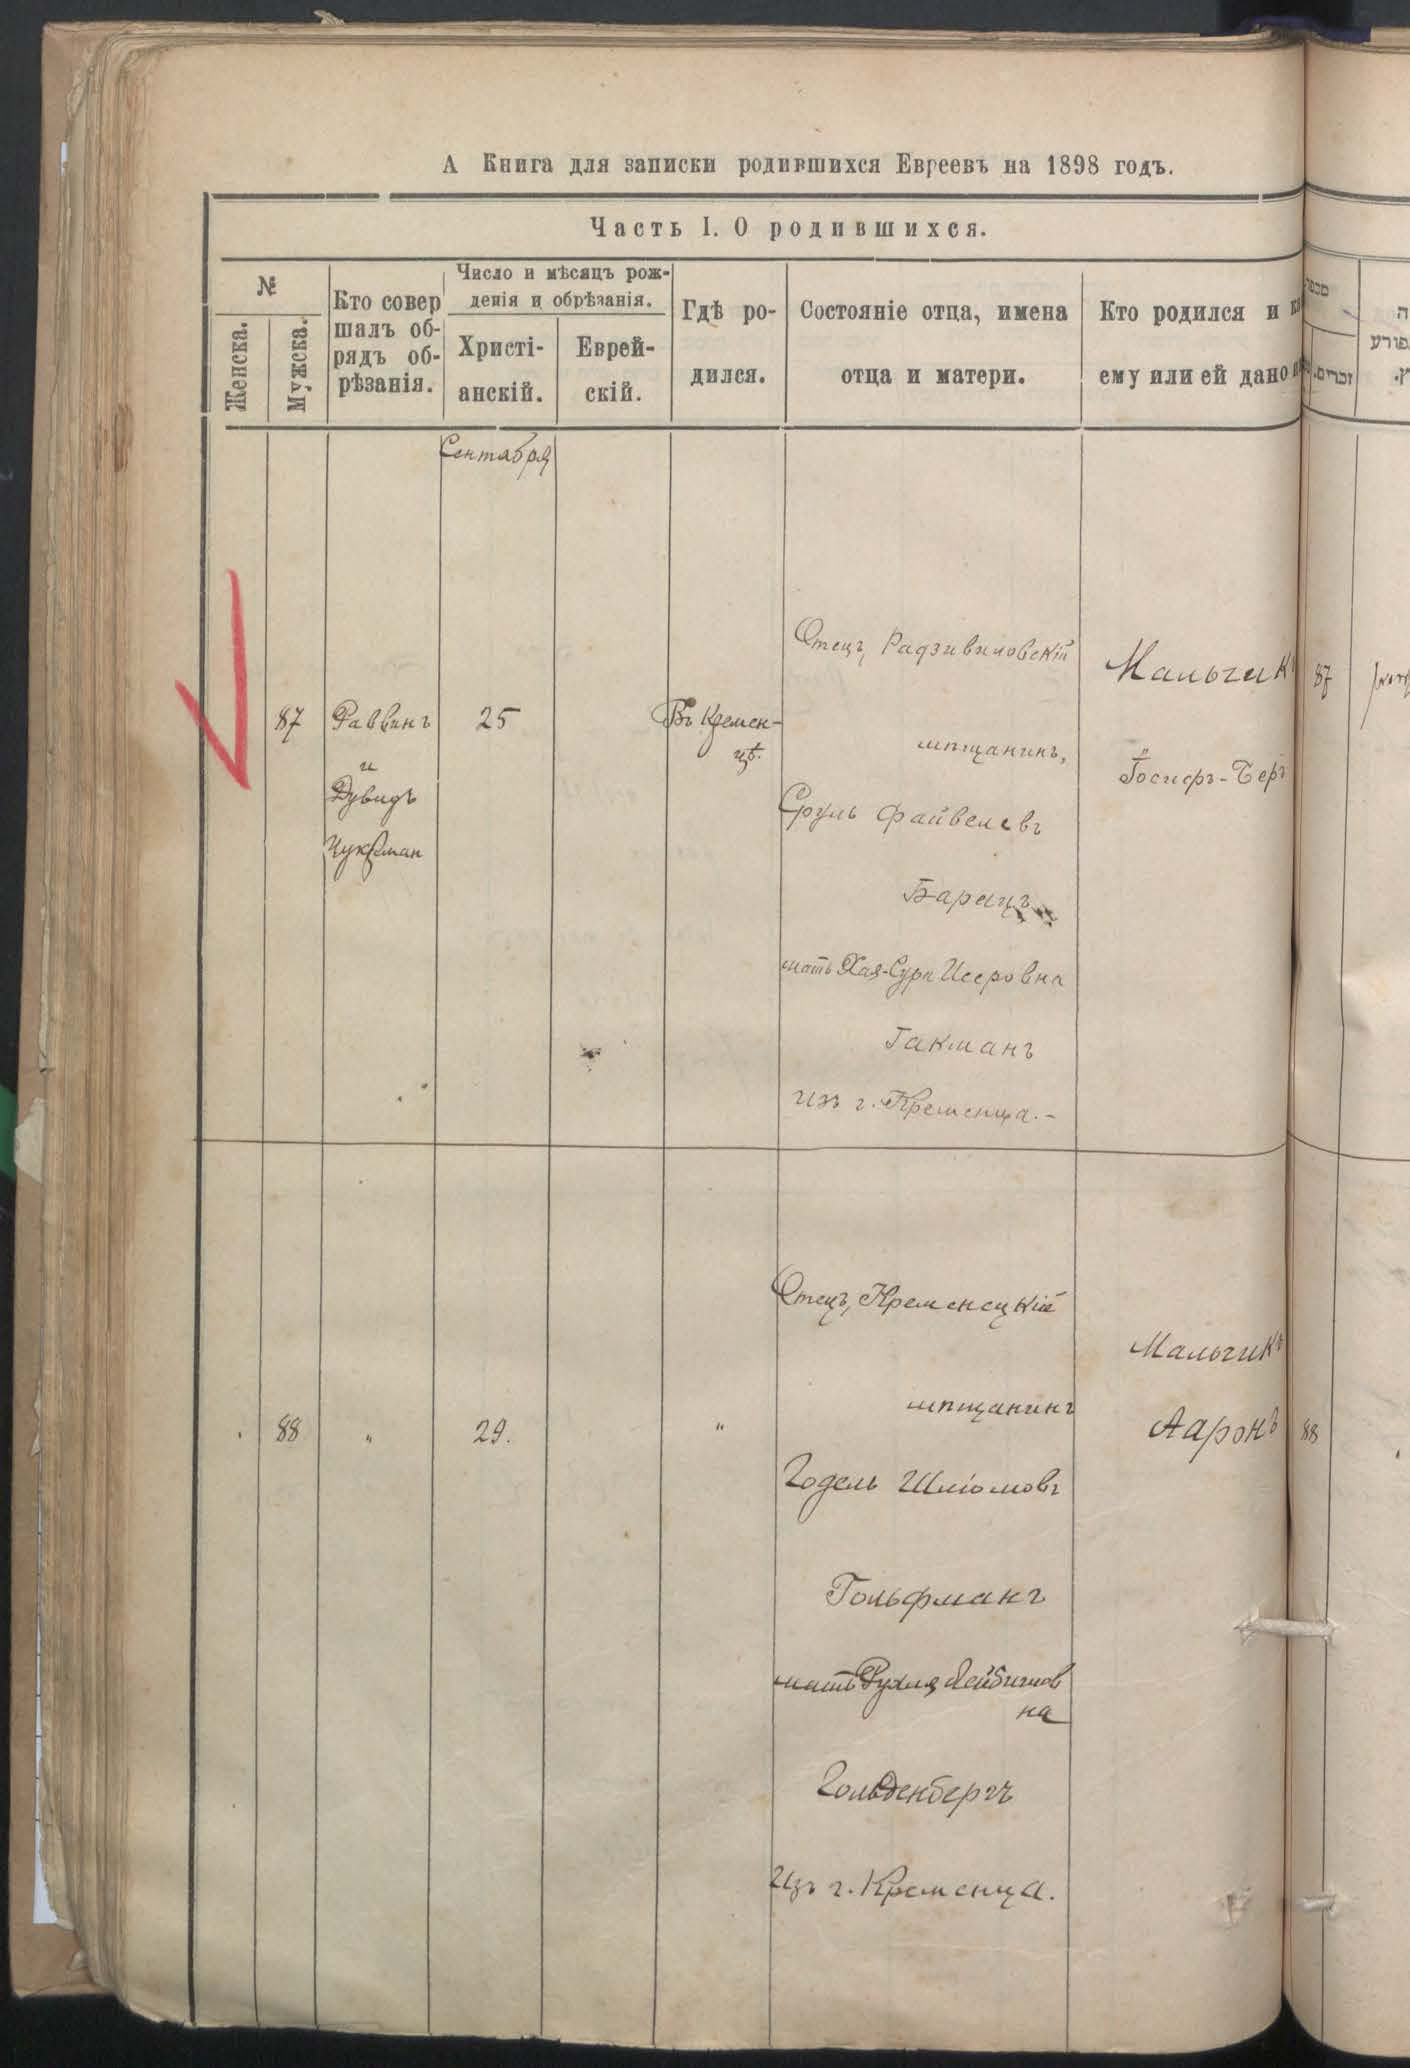 А Книга для записки родившихся Евреевъ на 1898 годъ.
Часть I. О родившихся.
№
Женска.
Мужска.
Кто совер
шалъ об-
рядъ об-
рѣзанія.
Число и мѣсяцъ рож-
денія и обрѣзанія.
Христі-
анскій.
Еврей-
скій.
Гдѣ ро-
дился.
Состояніе отца, имена
отца и матери.
Кто родился и
ему или ей дано
Сентября
87
Раввинъ
и
Дувидъ
Цукерман
25
Въ Кремен-
цѣ.
Отецъ, Радзивиловскій
мѣщанинъ,
Сруль Файвелевъ
Барацъ
мать Хая-Сура Исеровна
Гакманъ
изъ г. Кременца.-
Мальчикъ
Іосифъ-Беръ
87
88
"
29.
"
Отецъ, Кременецкій
мѣщанинъ
Годель Шліомовъ
Гольфманъ
мать Рухля Лейбишов
на
Гольденбергъ
Изъ г. Кременца.
Мальчикъ
Ааронъ
88
זכרים.